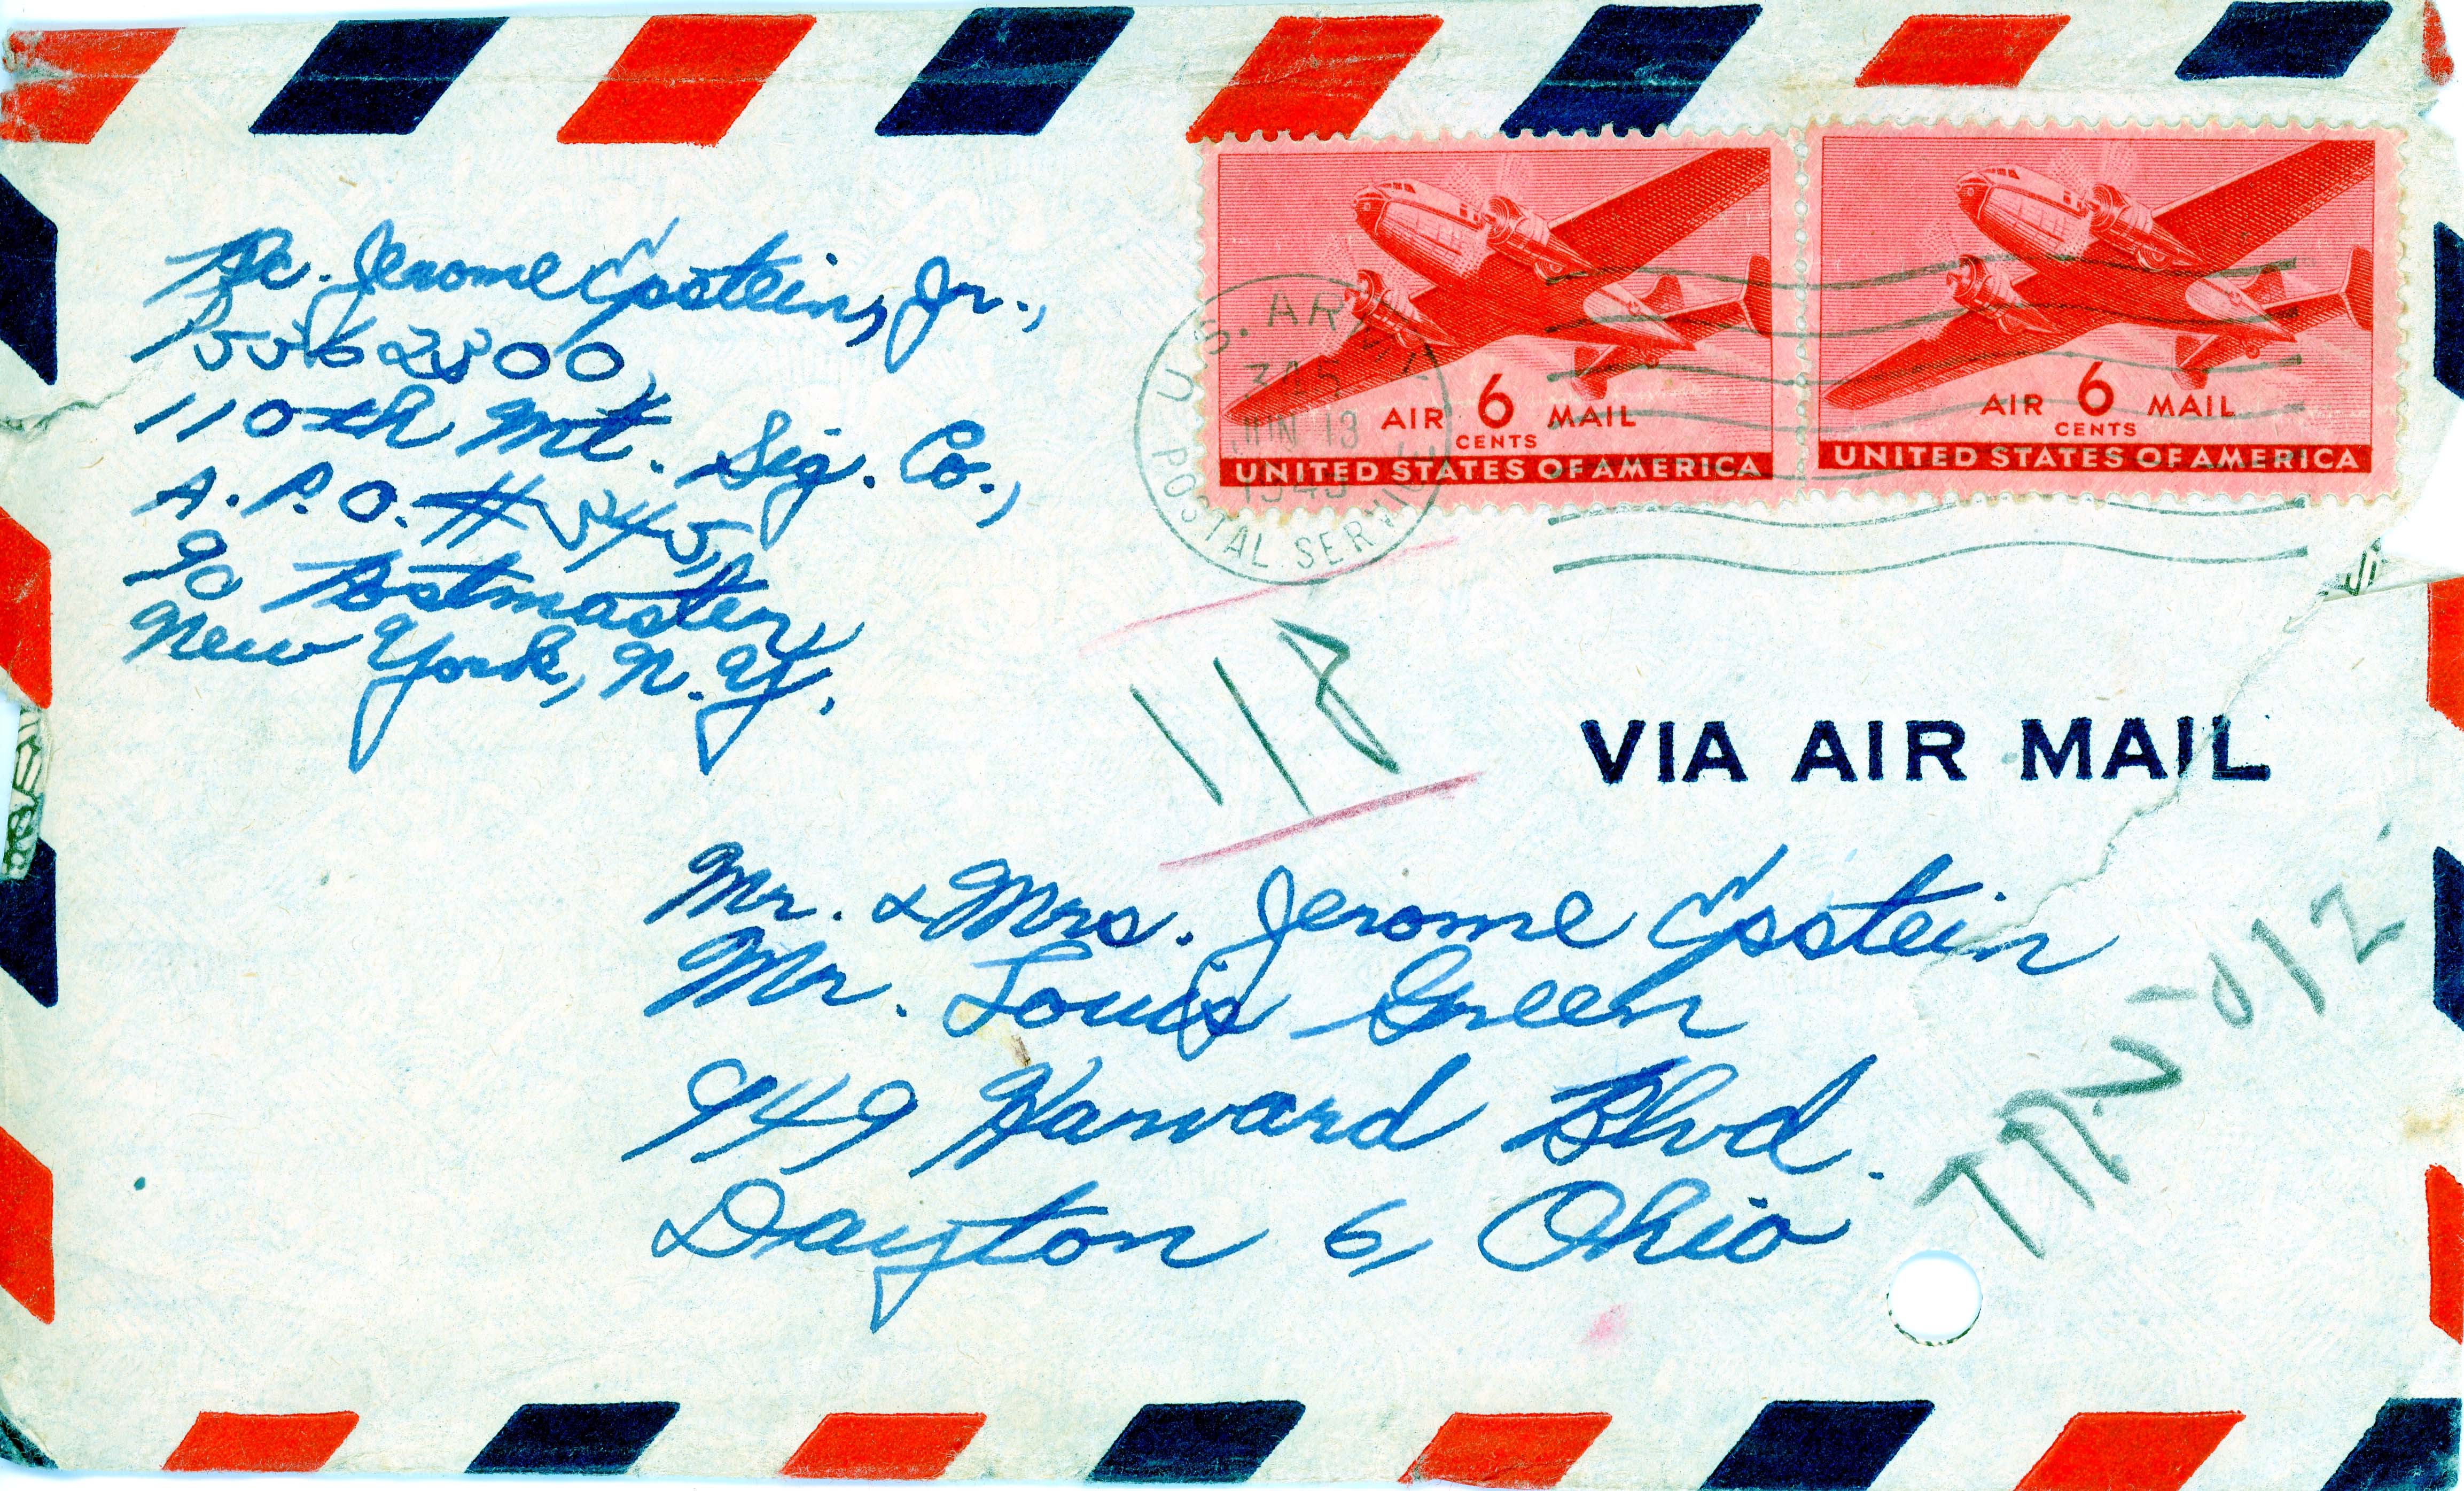 Pfc. Jerome Epstein, Jr.,
35562800,
110th Mt. Sig. Co.,
A.P.O. #345,
c/o Postmaster,
New York, N.Y.
U.S. ARMY
JUN 13
1945
POSTAL SERVICE
AIR 6 MAIL
CENTS
UNITED STATES OF AMERICA
AIR 6 MAIL
CENTS
UNITED STATES OF AMERICA
118
VIA AIR MAIL
Mr. & Mrs. Jerome Epstein
Mr. Louis Green
949 Harvard Blvd.
Dayton 6, Ohio